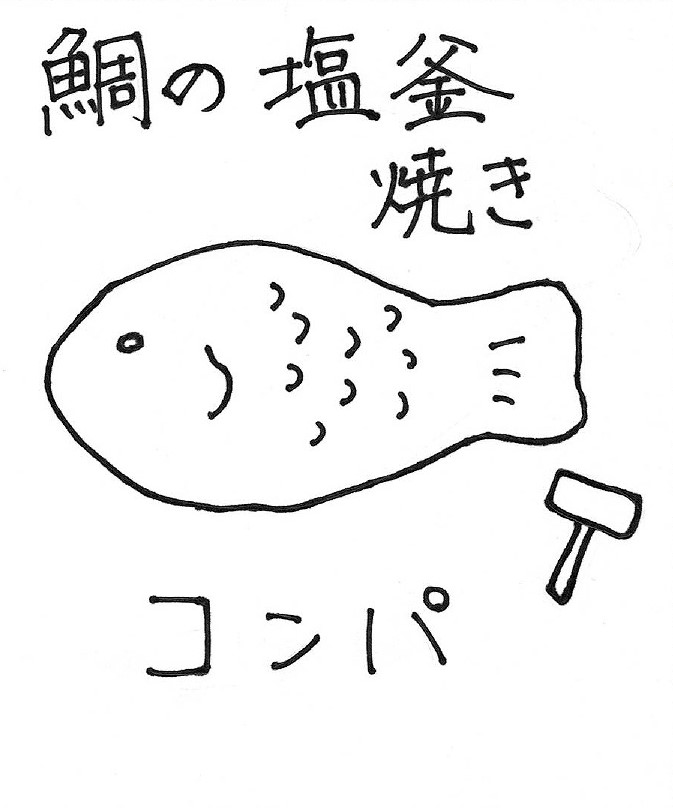 鯛の塩釜
焼き
コンパ